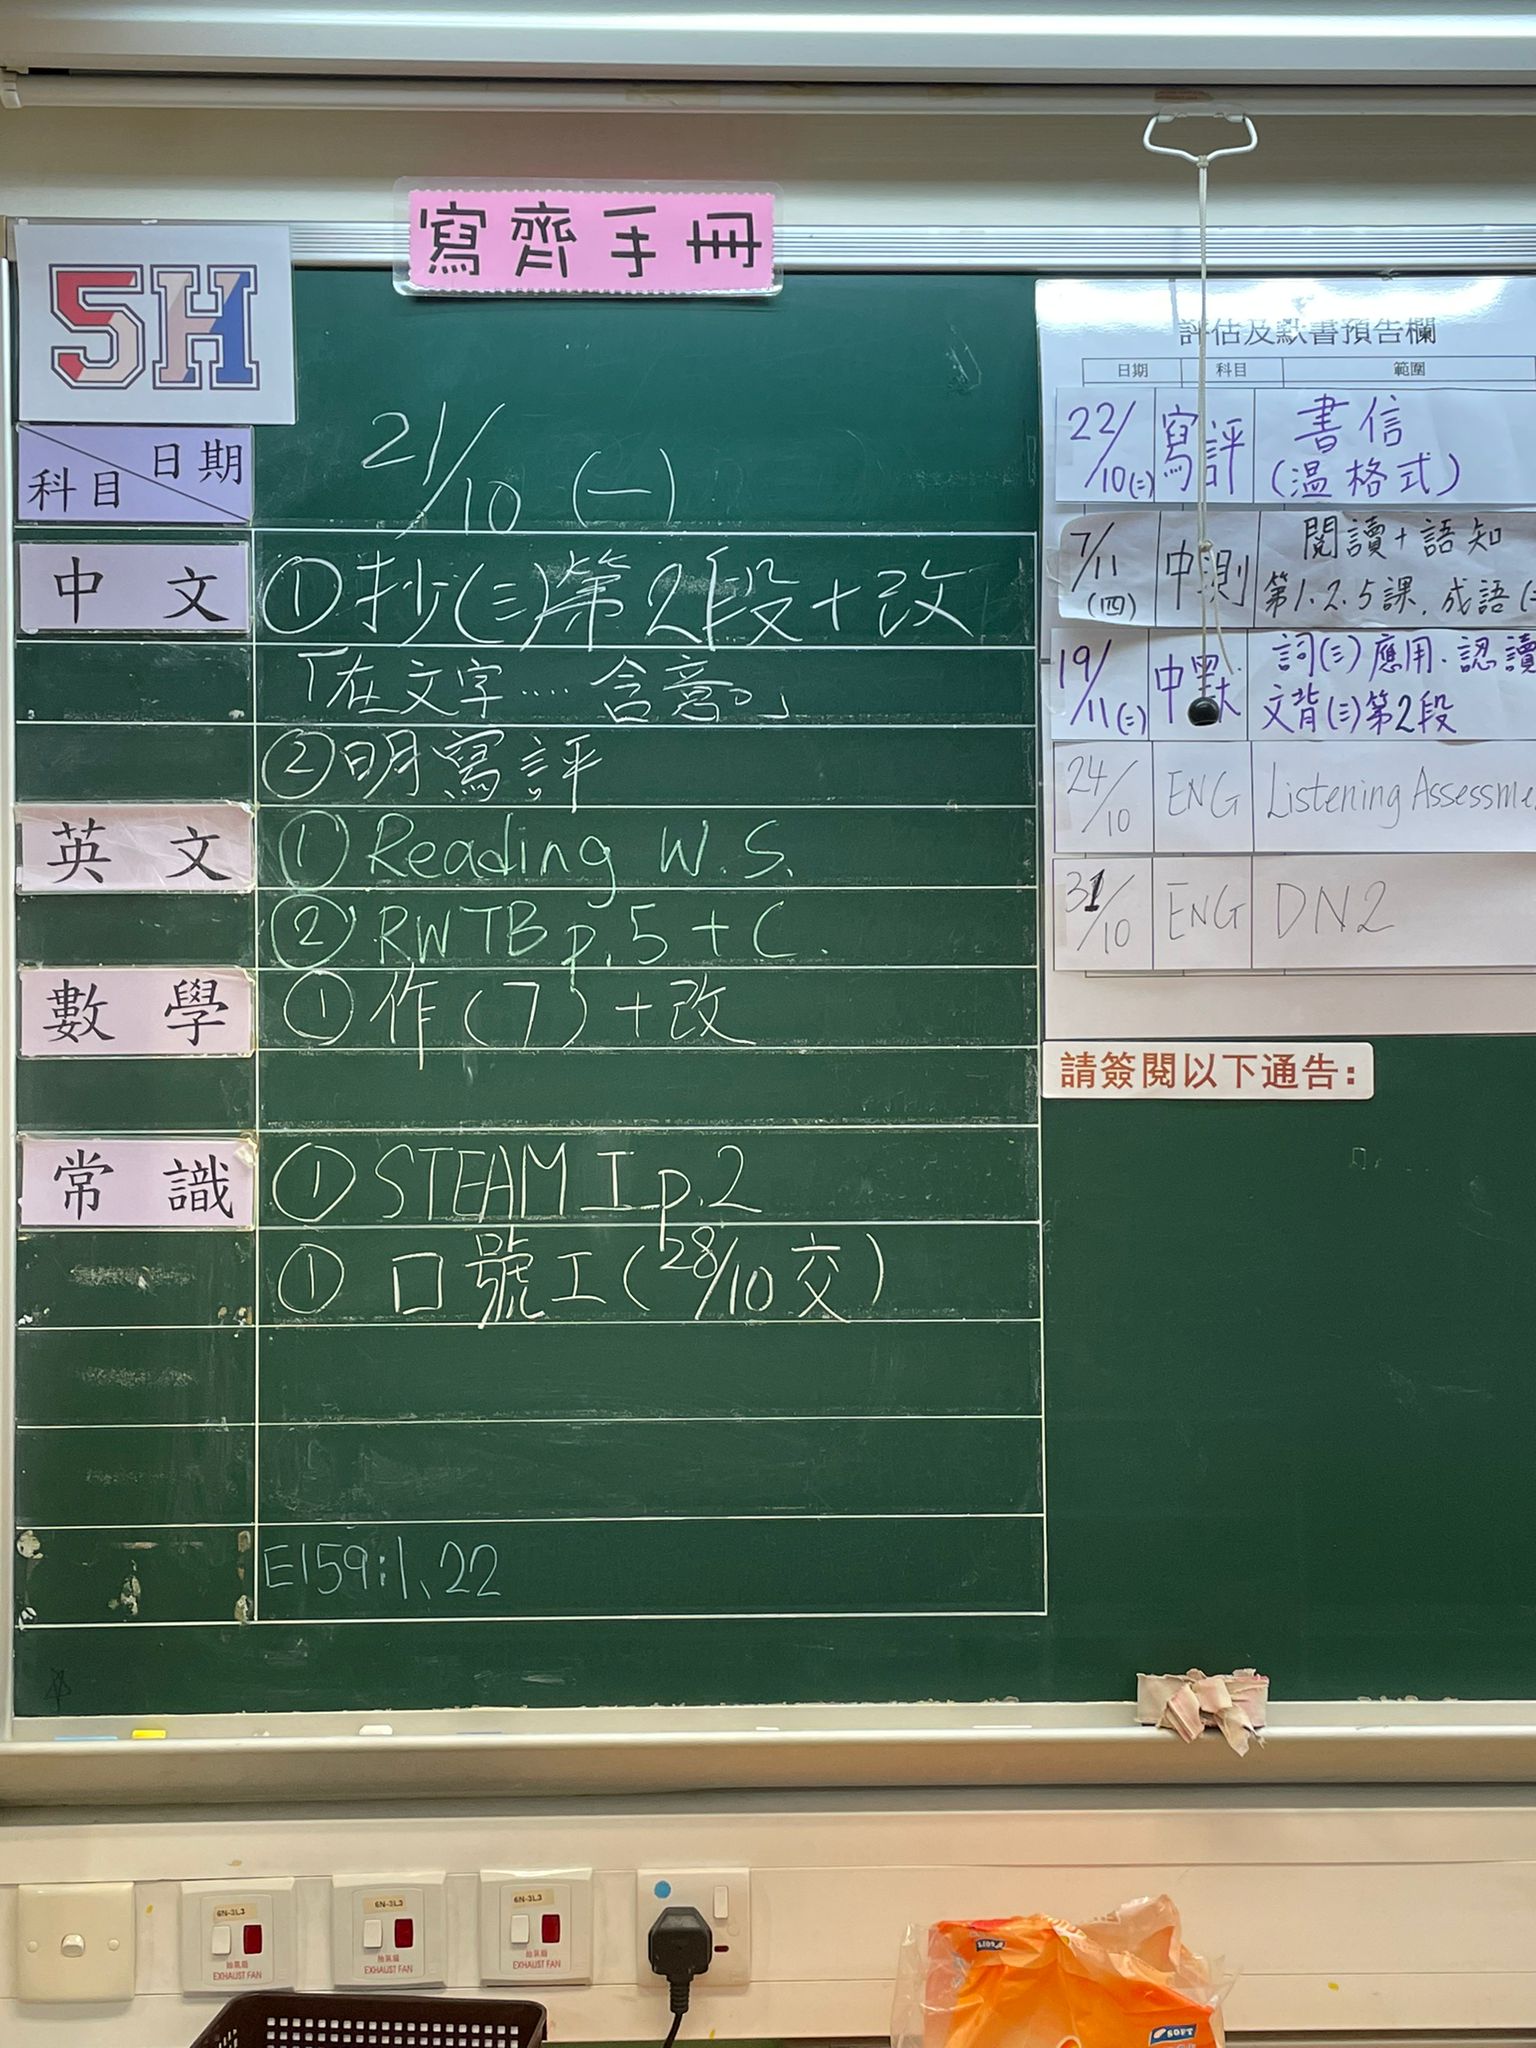 寫齊手冊
5H
日期
科目
21/10 (一)
中文
①抄(三)第2段+改
「在文字....含意。」
②明寫評
英文
①Reading W.S.
②RWTB p.5 + C.
數學
①作(7)+改
常識
①STEAM I p.2
①口號工(28/10交)
E159:1、22
評估及默書預告欄
日期 科目 範圍
22/10(二) 寫評 書信
(溫格式)
7/11(四) 中測 閱讀+語知
第1.2.5課.成語
19/11(二) 中默 詞(三)應用.認讀
文背(三)第2段
24/10 ENG Listening
31/10 ENG DN2
請簽閱以下通告:
6N-3L3
抽氣扇
EXHAUST FAN
6N-3L3
抽氣扇
EXHAUST FAN
6N-3L3
抽氣扇
EXHAUST FAN
SOFT